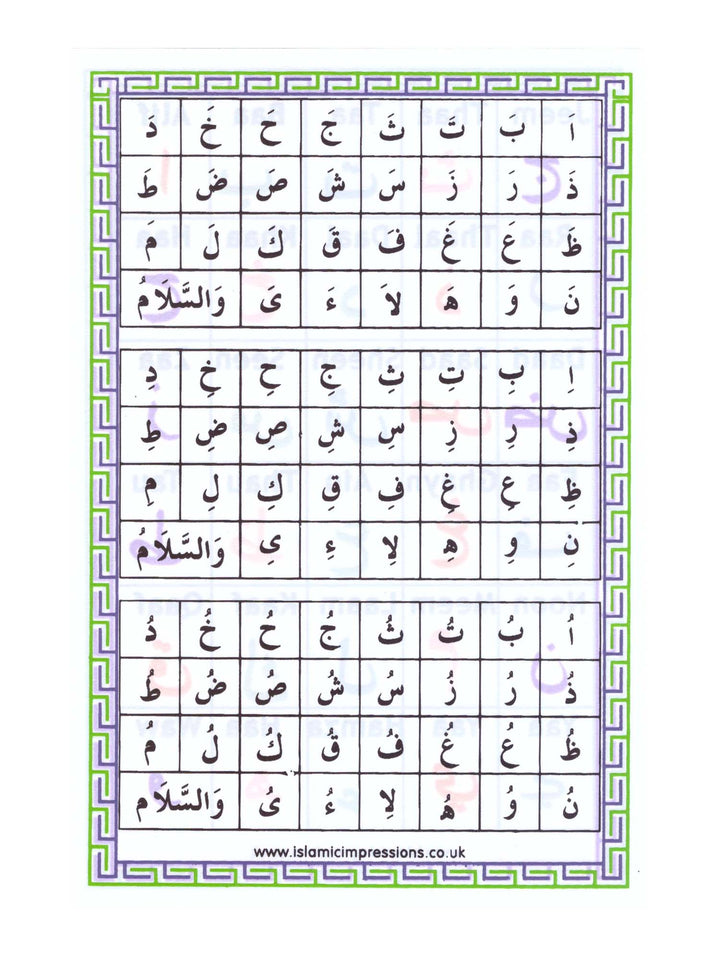 ا ب تَ ثَ جَ حَ خَ دَ
ذَ رَ زَ سَ شَ صَ ضَ طَ
ظَ عَ غَ فَ قَ كَ لَ مَ
نَ وَ هَ لاَ ءَ ىَ وَالسَّلَامُ
اِ بِ تِ ثِ جِ حِ خِ دِ
ذِ رِ زِ سِ شِ صِ ضِ طِ
ظِ عِ غِ فِ قِ كِ لِ مِ
نِ وِ هِ لاِ ءِ ىِ وَالسَّلَامُ
اُ بُ تُ ثُ جُ حُ خُ دُ
ذُ رُ زُ سُ شُ صُ ضُ طُ
ظُ عُ غُ فُ قُ كُ لُ مُ
نُ وُ هُ لاِ ءُ ىُ وَالسَّلَام
www.islamicimpressions.co.uk